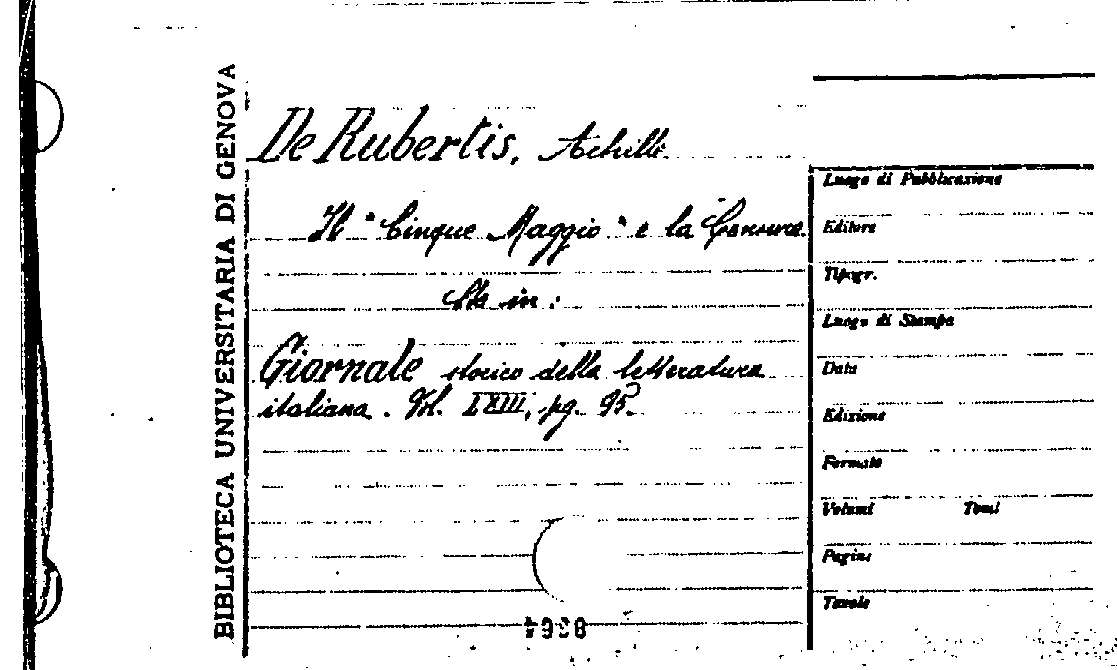 BIBLIOTECA UNIVERSITARIA DI GENOVA
De Rubertis, Achille
Il "Cinque Maggio" e la Censura.
Sta in:
Giornale storico della letteratura
italiana. Vol. LXIII, pg. 95.
Luogo di Pubblicazione
Editore
Tipogr.
Luogo di Stampa
Data
Edizione
Formato
Volumi Tomi
Pagine
Tavole